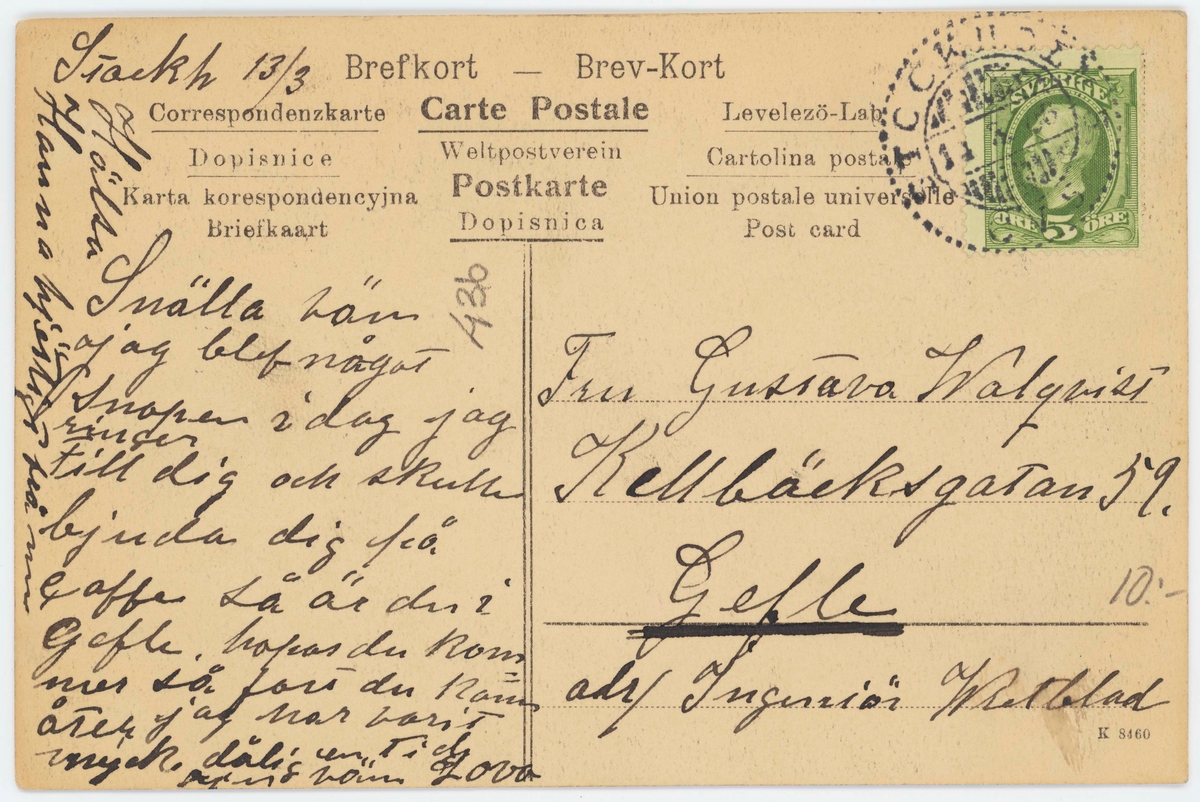 Stockh 13/3
Brefkort — Brev-Kort
Correspondenzkarte
Carte Postale
Levelezö-Lap
Dopisnice
Weltpostverein
Cartolina postale
Karta korespondencyjna
Postkarte
Union postale universelle
Briefkaart
Dopisnica
Post card
SVERIGE
ÖRE 5 ÖRE
436
Snälla vän
jag blef något
snopen i dag jag
ringer
till dig och skulle
bjuda dig på
caffe så är du i
Gefle, hopas du kom
mer så fort du kom
åter jag har varit
mycke dålig en tid
vän Lova
Hälsa
Hanna hjertligt från
Fru Gustava Walqvist
Kellbäcksgatan 59.
Gefle
adr/ Ingeniör Wretblad
10:-
K 8460